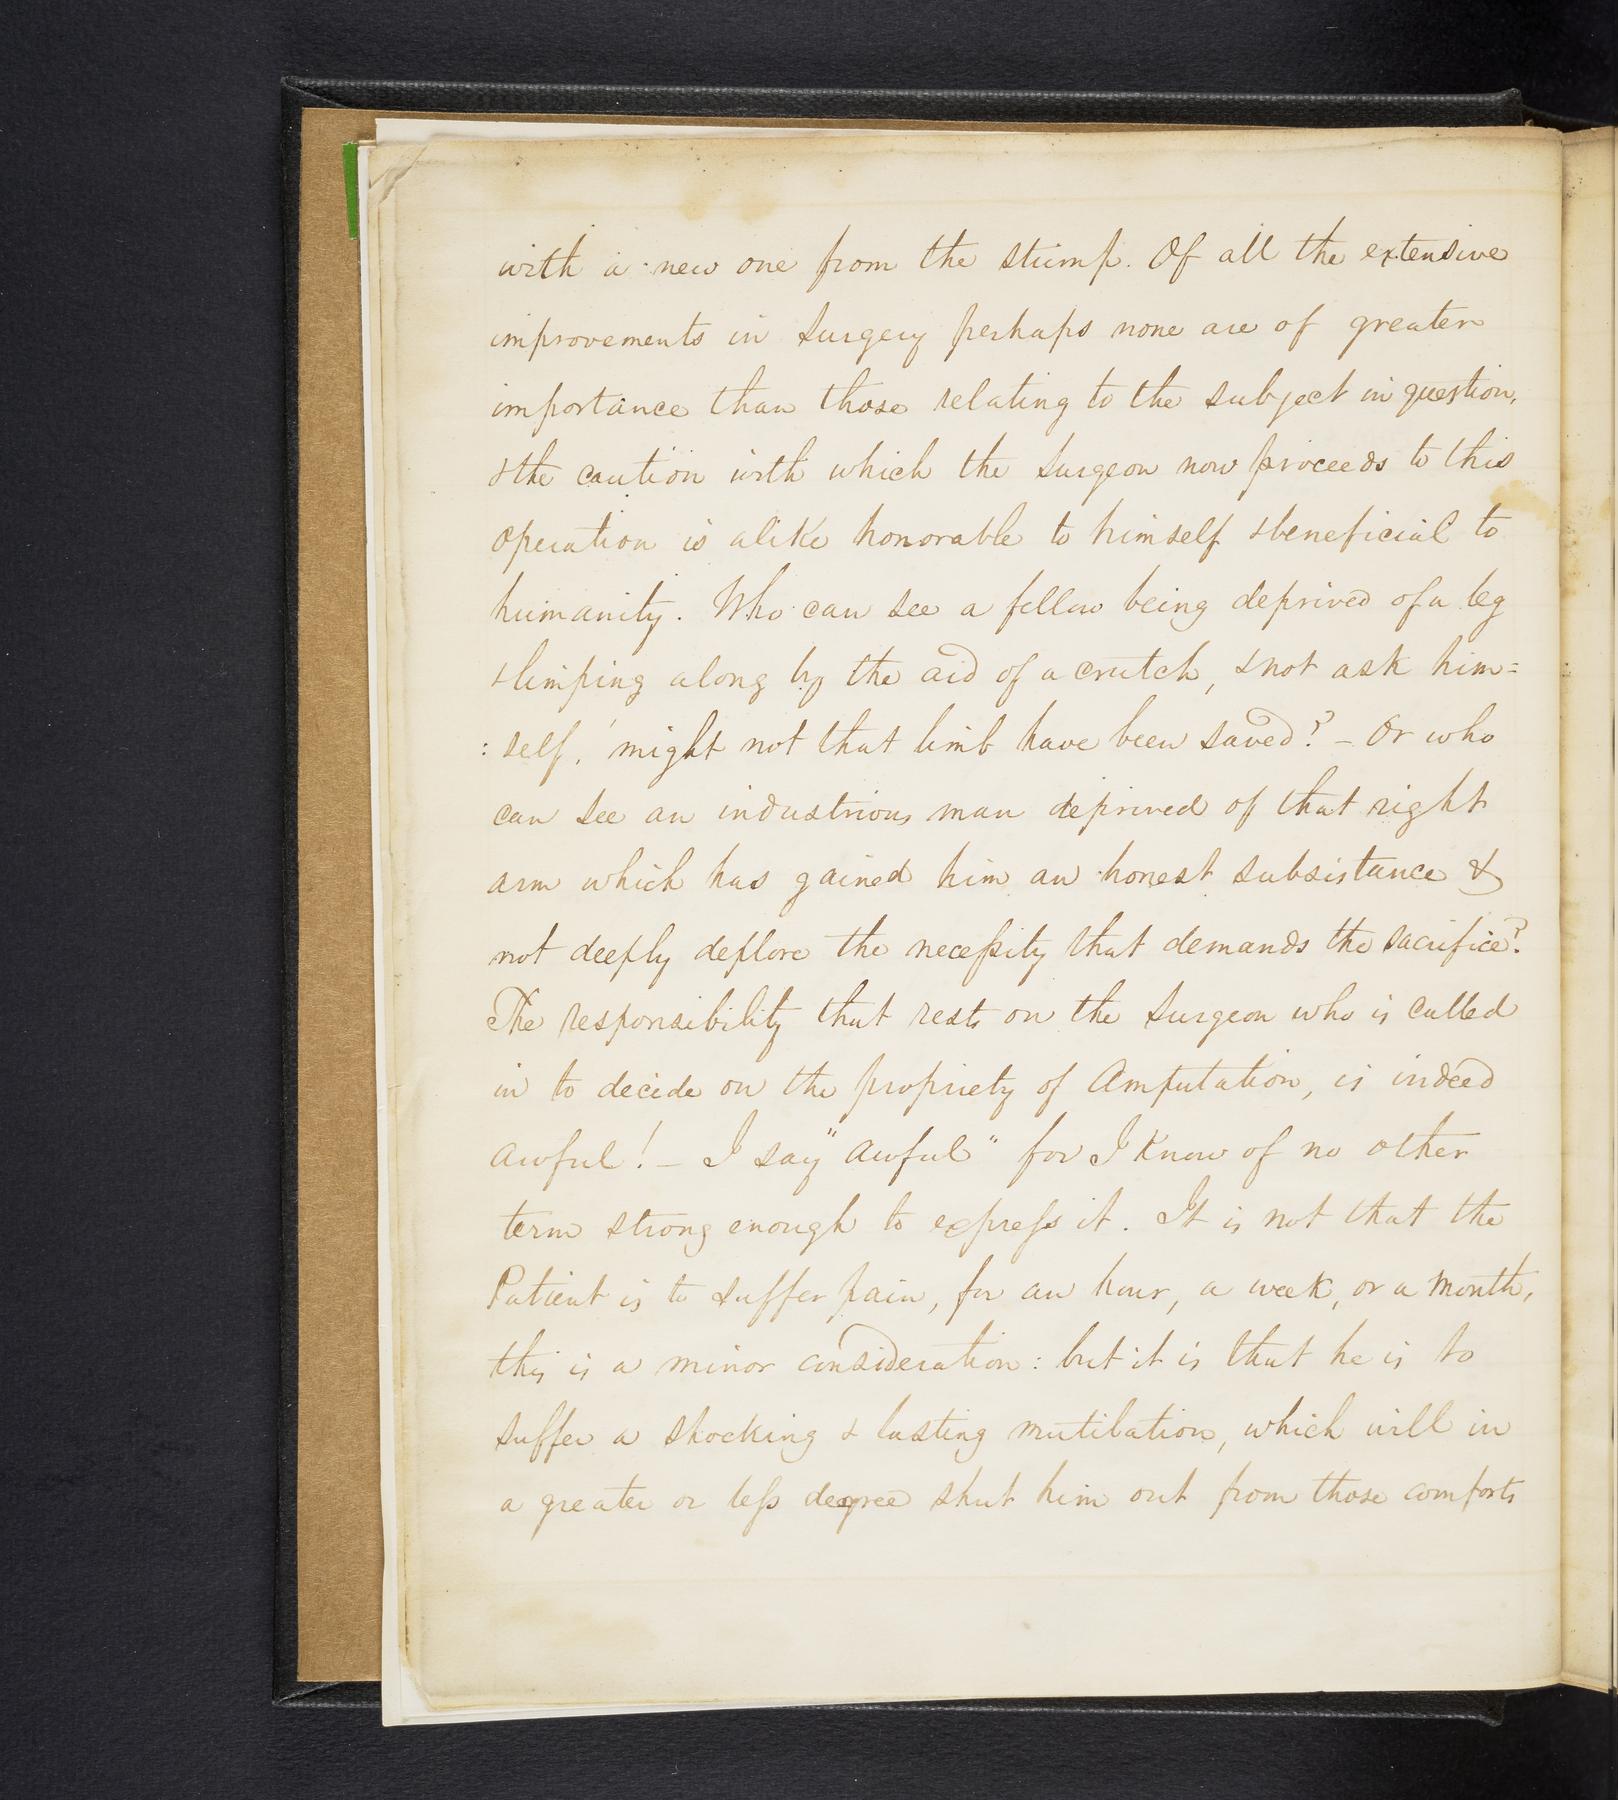 with a new one from the stump. Of all the extensive
improvements in Surgery perhaps none are of greater
importance than those relating to the subject in question,
& the caution with which the Surgeon now proceeds to this
operation is alike honorable to himself & beneficial to
humanity. Who can see a fellow being deprived of a leg
& limping along by the aid of a crutch, & not ask him=
: self, 'might not that limb have been saved? – Or who
can see an industrious man deprived of that right
arm which has gained him an honest subsistance &
not deeply deplore the neceſsity that demands the sacrifice?
The responsibility that rests on the Surgeon who is called
in to decide on the propriety of Amputation, is indeed
awful! – I say "awful" for I Know of no other
term strong enough to expreſs it. It is not that the
Patient is to suffer pain, for an hour, a week, or a month,
this is a minor consideration: but it is that he is to
suffer a shocking & lasting mutilation, which will in
a greater or leſs degree shut him out from those comforts